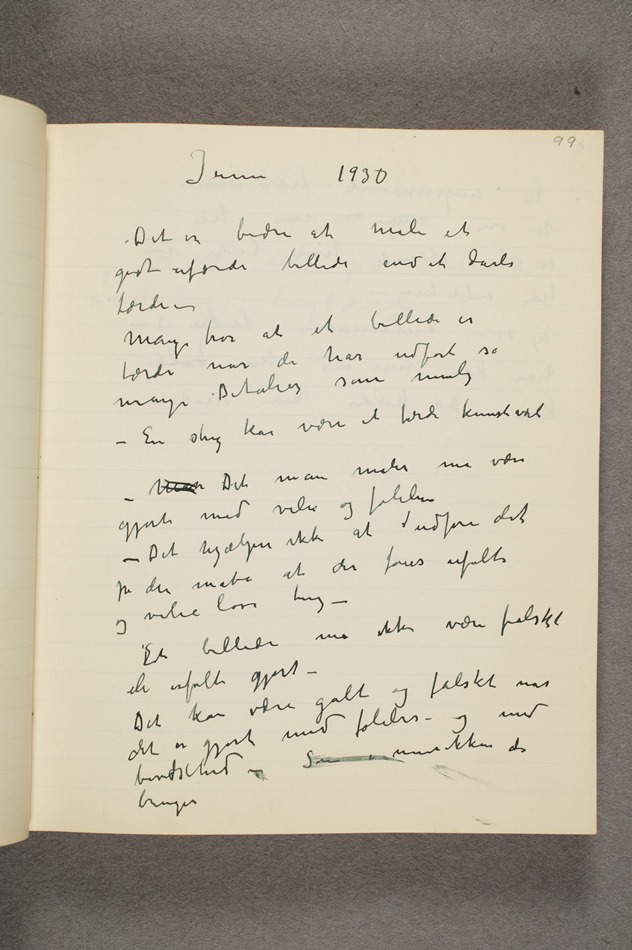 99
1930
Det er bedre at male et
godt ufærdi billede end et darli
færdi –
Mange tror at et billede er
færdi nar de har udført sa
mange Detalier som muli
– En streg kan være et færdi kunstværk
– Det man maler ma være
gjort med vilie og følelse
– Det hjælper ikke at udføre det
pa den mate at der føies ufølte
og vilieløse ting –
Et billede ma ikke være falskt
eler ufølt gjort –
Det kan være galt og falskt nar
det er gjort med følelse – og med
bevidsthed –
bruges